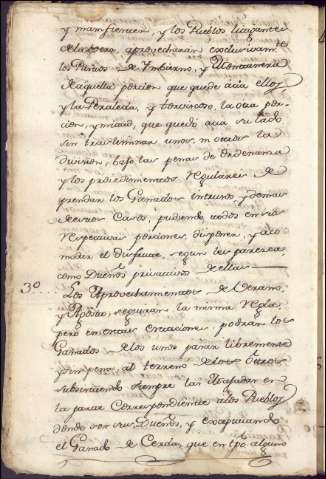 y manfiencen y los Pueblos
aprovecharan exclusivam.te
los Partios de Imbierno, y
de aquella porcion que quede acia ellos
y la Peraleda, y Torcinoso, la otra por-
cion, y mitad, que quedó acia su lado
sin traslimitar unos, ni otros la
division, bajo las penas de ordenanza
y los procedimientos regulares de
prendar los Ganados intrusos, y demas
de estos Casos, pudiendo todos en sus
respectivas porciones disponer, y aco-
modar el disfrute, segun les parezca
como Dueños privativos de ellas
3º Los Aprovechamientos de Verano,
y Agosto, seguiran la misma Regla,
pero en estas estaciones podran los
Ganados de los unos pasar libremente
al terreno de los otros
subsistiendo siempre las
la parte Correspondiente a los Pueblos
donde son sus Dueños, y exceptuando
el Ganado de Cerda, que en tpo. alguno